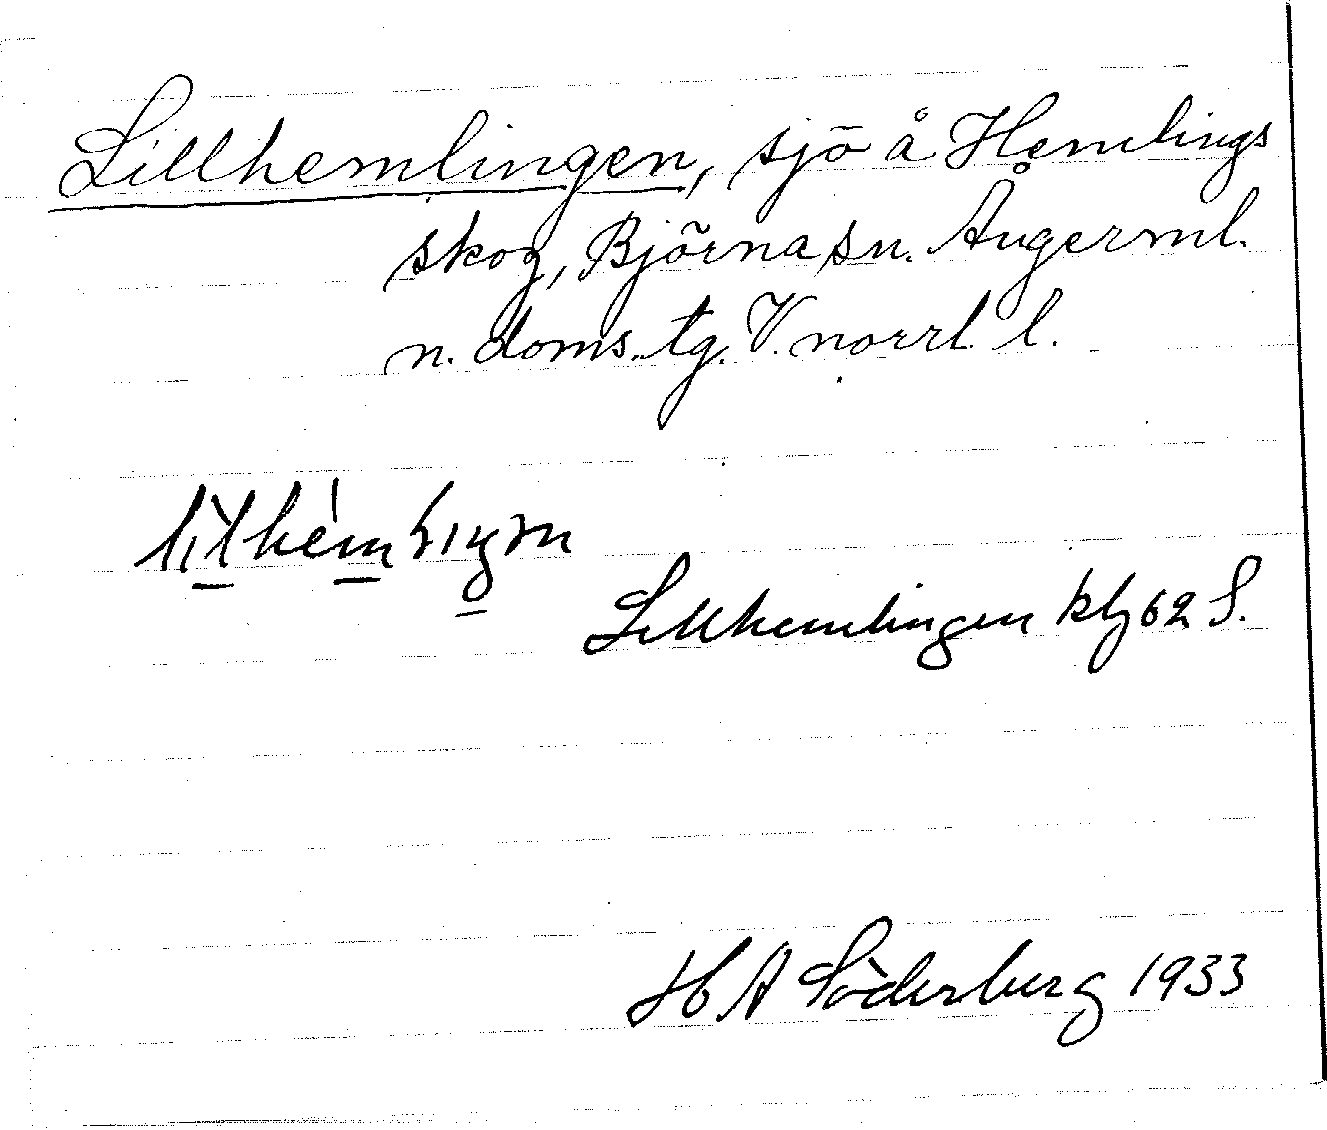 Lillhemlingen, sjö å Hemlings
skog, Björna sn. Ångerml.
n. doms. tg. V. norrl. l.
Lillhemlingen kbg 62 S.
H A Söderberg 1933